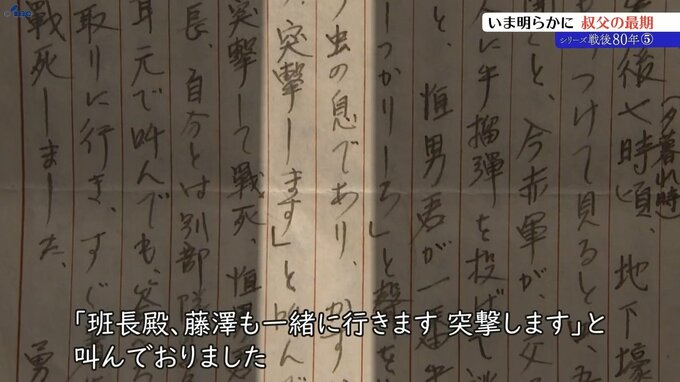 いま明らかに 叔父の最期
シリーズ戦後80年⑤
(夕暮れ時)
後七時頃、地下壕
つけて見ると、五
と、今赤軍が、交
に手榴弾を投げ
と、恒男君が一番
っかりしろ」と
虫の息であり、かす
、突撃します」と叫んで
突撃して戦死、恒男
長、自分とは別部隊
耳元で叫んでも、答
取りに行き、すぐ
戦死しました。
勇
「班長殿、藤澤も一緒に行きます 突撃します」と
叫んでおりました